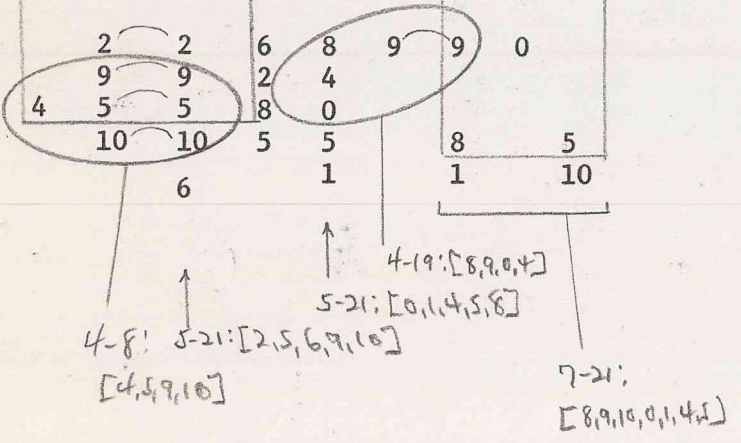 2 2 6 8 9 9 0
9 9 2 4
4 5 5 8 0
10 10 5 5 8 5
6 1 1 10
4-19:[8,9,0,4]
5-21:[0,1,4,5,8]
4-8: 5-21:[2,5,6,9,10]
[4,5,9,10]
7-21:
[8,9,10,0,1,4,5]